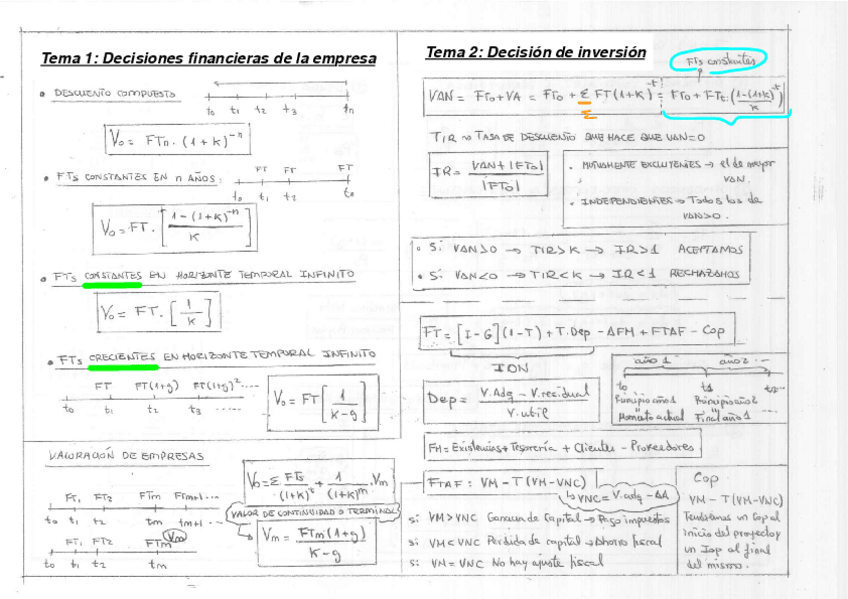 Tema 1: Decisiones financieras de la empresa
• DESCUENTO COMPUESTO
t₀ t₁ t₂ t₃ tₙ
V₀ = FTₙ · (1+K)⁻ⁿ
• FTs CONSTANTES EN n AÑOS:
FT FT FT
t₀ t₁ t₂ t₀
V₀ = FT · [1-(1+K)⁻ⁿ / K]
• FTs CONSTANTES EN HORIZONTE TEMPORAL INFINITO
V₀ = FT · [1/K]
• FTs CRECIENTES EN HORIZONTE TEMPORAL INFINITO
FT FT(1+g) FT(1+g)² ....
t₀ t₁ t₂ t₃ .....
V₀ = FT [1/(K-g)]
VALORACIÓN DE EMPRESAS
V₀ = Σ FTs/(1+K)ᵗ + 1/(1+K)ᵐ · Vm
FT₁ FT₂ FTm FTm+1 ...
t₀ t₁ t₂ tm tm+1 ...
VALOR DE CONTINUIDAD O TERMINAL
FT₁ FT₂ FTm Vm
t₀ t₁ t₂ tm
Vm = FTm(1+g) / K-g
Tema 2: Decisión de inversión
FTs constantes
VAN = FT₀ + VA = FT₀ + Σ FT(1+K)⁻ᵗ = FT₀ + FTt · (1-(1+K)⁻ᵗ / K)
Σ
TIR → TASA DE DESCUENTO QUE HACE QUE VAN=0
IR = VAN + |FT₀| / |FT₀|
• MUTUAMENTE EXCLUYENTES → el de mayor
VAN.
• INDEPENDIENTES → Todos los de
VAN>0.
• Si VAN>0 → TIR>K → IR>1 ACEPTAMOS
• Si VAN<0 → TIR<K → IR<1 RECHAZAMOS
FT = [I-G](1-T) + T.Dep - ΔFM + FTAF - Cop
ION
año 1 año 2 ...
t₀ t₁ t₂...
Principio año 1 Principio año 2
Momento actual Final año 1
Dep = V.Adq - V.residual / V.util
FM = Existencias + Tesorería + Clientes - Proveedores
FTAF: VM - T(VM-VNC)
↳ VNC = V.adq - AA
si VM>VNC Ganancia de Capital → Pago impuestos
si VM<VNC Perdida de capital → Ahorro fiscal
si VM = VNC No hay ajuste fiscal
Cop
VM - T(VM-VNC)
Tendríamos un Cop al
inicio del proyecto y
un Iop al final
del mismo.